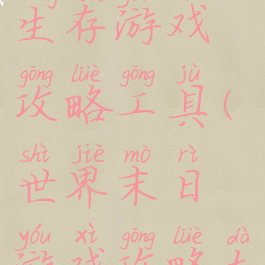 生存游戏
gōng lüè gōng jù
攻略工具(
shì jiè mò rì
世界末日
yóu xì gōng lüè dà
游戏攻略大